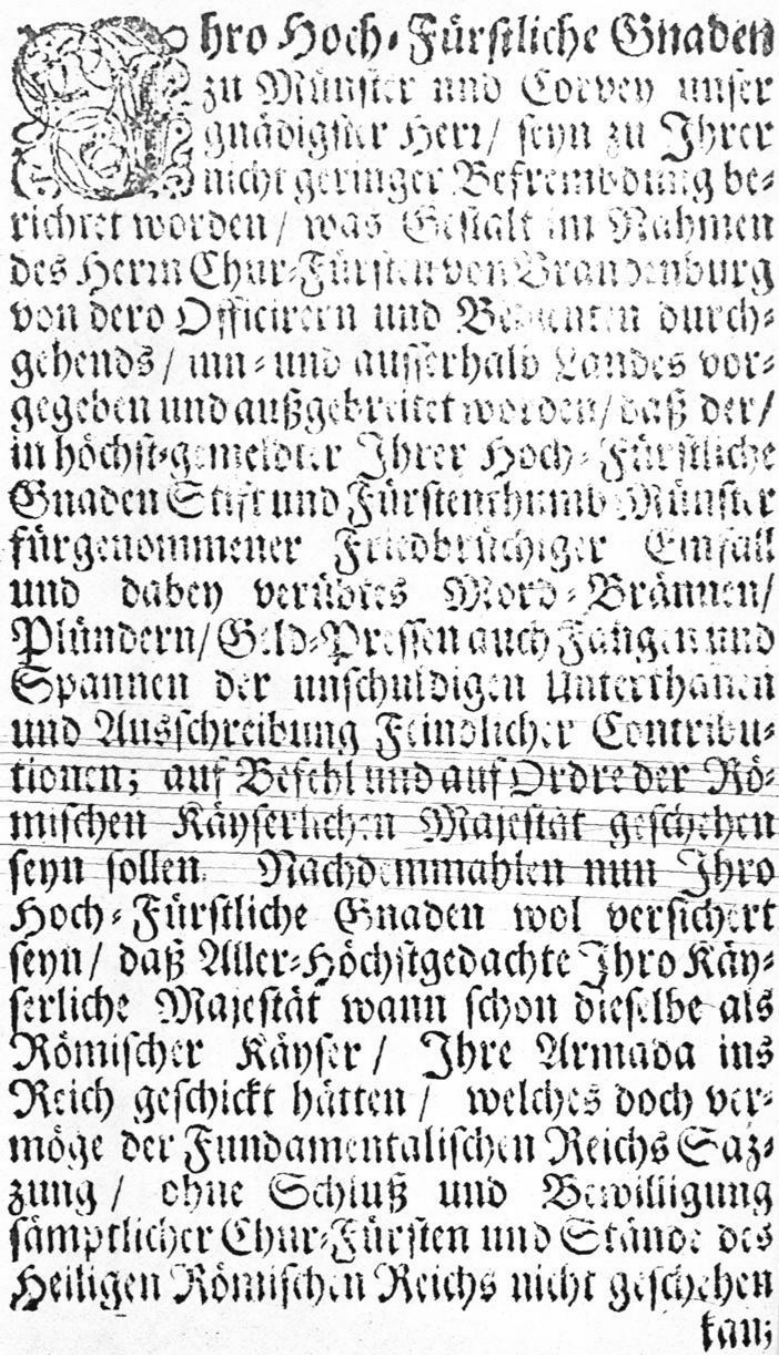 Ihro Hoch-Fürstliche Gnaden
zu Münster und Corvey unser
gnädigster Herr/ seyn zu Ihrer
nicht geringer Befrembdung be-
richtet worden/ was Gestalt im Nahmen
des Herrn Chur-Fürsten von Brandenburg
von dero Officirern und Bedienten durch-
gehends/ inn- und ausserhalb Landes vor-
gegeben und außgebreitet worden/ daß der/
in höchst-gemeldter Ihrer Hoch-Fürstliche
Gnaden Stift und Fürstenthumb Münster
fürgenommener Friedbrüchiger Einfall
und dabey verübtes Mord-Brännen/
Plündern/ Geld-Pressen auch Fangen und
Spannen der unschuldigen Unterthanen
und Ausschreibung Feindlicher Contribu-
tionen; auf Befehl und auf Ordre der Rö-
mischen Käyserlichen Majestät geschehen
seyn sollen. Nachdemmahlen nun Ihro
Hoch-Fürstliche Gnaden wol versichert
seyn/ daß Aller-Höchstgedachte Ihro Käy-
serliche Majestät wann schon dieselbe als
Römischer Käyser/ Ihre Armada ins
Reich geschickt hätten/ welches doch ver-
möge der Fundamentalischen Reichs Saz-
zung/ ohne Schluß und Bewilligung
sämptlicher Chur-Fürsten und Stände des
Heiligen Römischen Reichs nicht geschehen
kan;